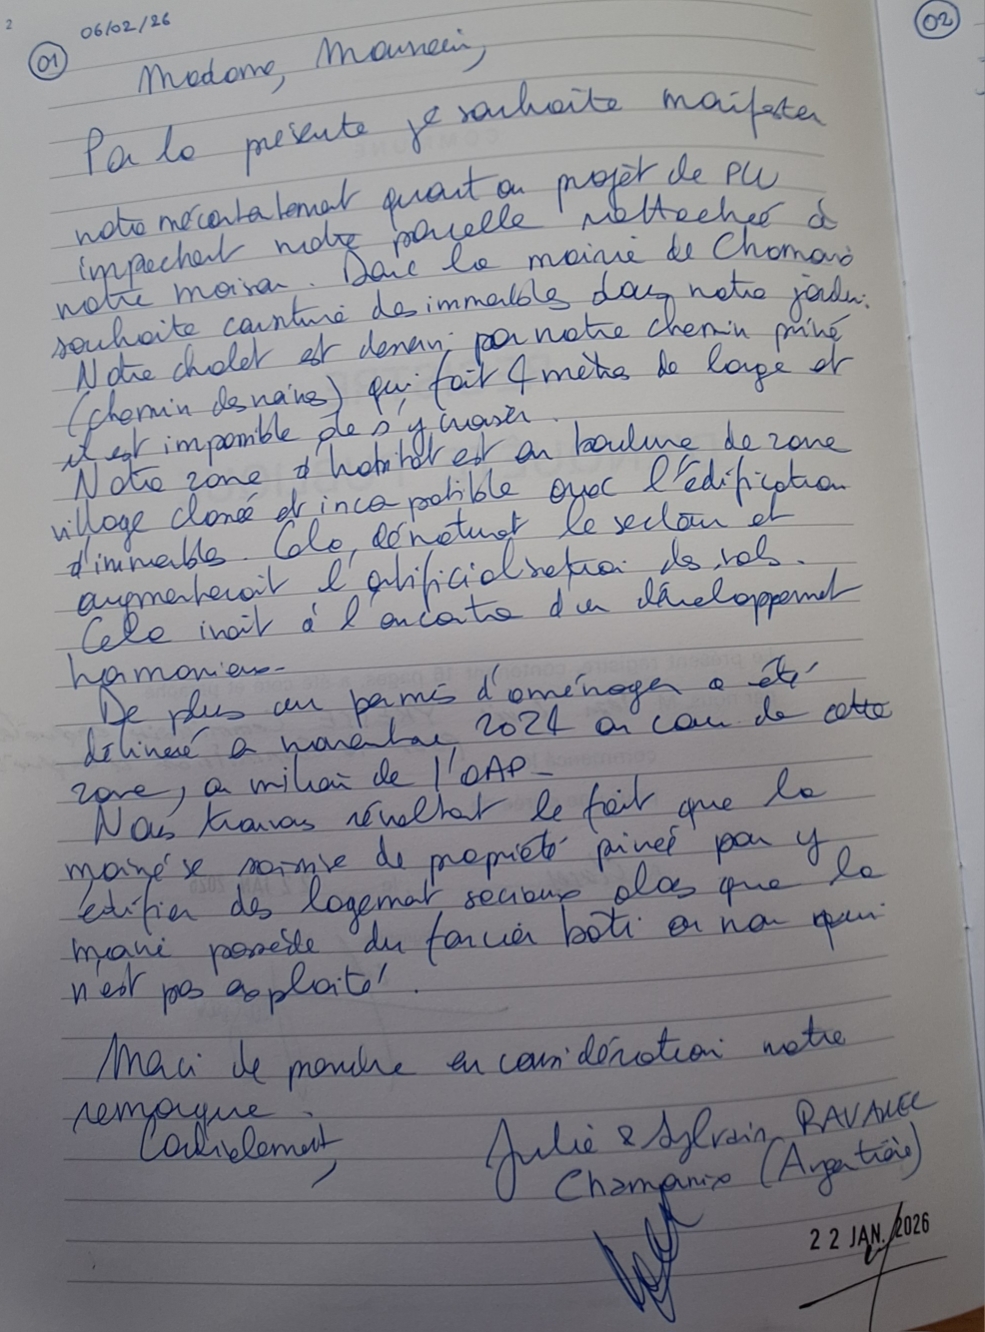 2
06/02/26
01
02
Madame, Monsieur,
Par la présente je souhaite manifester
notre mécontentement quant au projet de PLU
impactant notre parcelle rattachée à
notre maison. Donc la mairie de Chamonix
souhaite construire des immeubles dans notre jardin.
Notre chalet est desservi par notre chemin privé
(chemin des        ) qui fait 4 mètres de large et
il est impossible de s'y croiser.
Notre zone d'habitat est en bordure de zone
village classée et incompatible avec l'édification
d'immeubles. Cela dénaturerait le secteur et
augmenterait l'artificialisation des sols.
Cela irait à l'encontre d'un développement
harmonieux.
De plus un permis d'aménager a été
délivré en novembre 2024 au cœur de cette
zone, au milieu de l'OAP.
Nous trouvons révoltant le fait que la
mairie se saisisse de propriété privée pour y
édifier des logement sociaux alors que la
mairie possède du foncier bâti ou non qui
n'est pas exploité.
Merci de prendre en considération notre
remarque.
Cordialement,
Julie & Sylvain RAVANEL
Chamonix (Argentière)
22 JAN. 2026